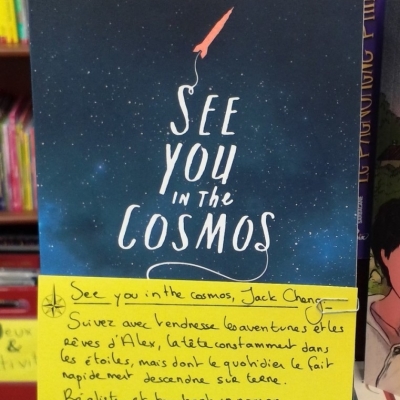 SEE
YOU
IN THE
COSMOS
See you in the cosmos, Jack Cheng
Suivez avec tendresse les aventures et les
rêves d'Alex, la tête constamment dans
les étoiles, mais dont le quotidien le fait
rapidement descendre sur terre.